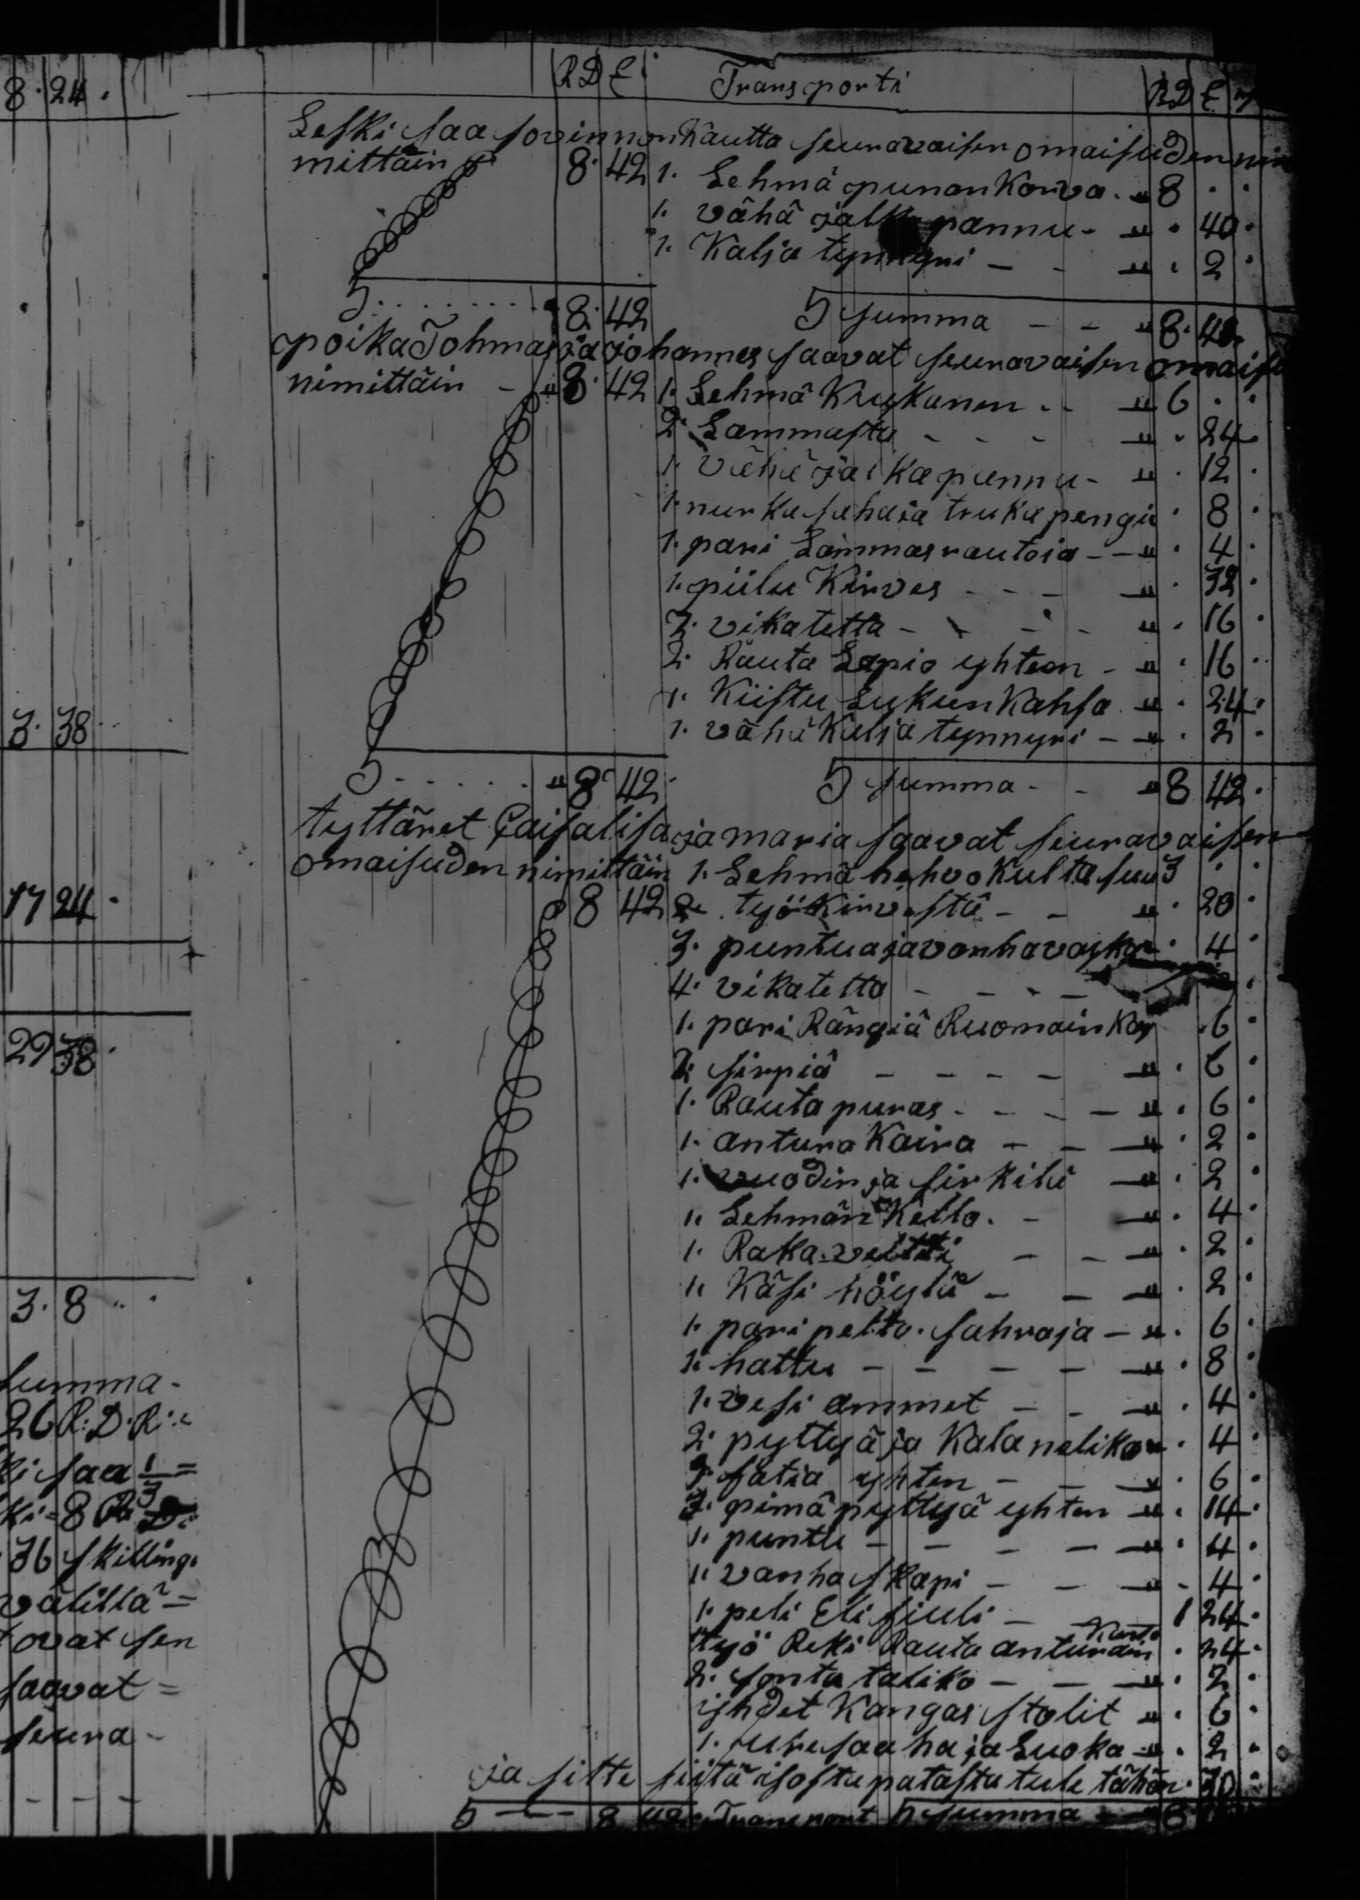 8. 24.
R D C Transporti R D C
Leski saa sovinnon kautta seuravaisen omaisuden nim
mittäin 8. 42 1. Lehmä punan korva. " 8 . .
1. vähä jalka pannu - " . 40.
1. Kalja tynnyri - - " . 2 .
S. . . . . . . 8. 42 S summa - - " 8. 42.
poika Tohmas ja Johannes saavat seuravaisen omaisu
nimittäin - " 8. 42 1. Lehmä Kuukanen . . " 6 . .
2. Lammasta - - - " . 24.
1. vähä jalka pannu - " . 12 .
1. nurka saha ja truka pengi . 8 .
1. pari Lammas rautoia - - " . 4 .
1. piilu Kirves - - - " . 32 .
3. vikatetta - - - - " . 16 .
2. Rauta Lapio yhteen - " . 16 .
1. Kiistu Lukun Kahsa " . 24.
1. vähä Kalja tynnyri - " . 2 .
3. 38
S. . . . . " 8. 42 S summa - - " 8 42.
tyttäret Caisalisa ja maria saavat seuravaisen
omaisuden nimittäin 1. Lehmä hehvo kulta suu 3 . .
17 24 . 8 42 2. työ Kirvestä - - " . 20 .
3. puntua ja vanha vaska . 4 .
4. vikatetta - - - -
1. pari Rängiä Ruomain kan . 6 .
29 38. 2. sirpiä - - - - " . 6 .
1. Rauta puras - - - - " . 6 .
1. antura Kaira - - " . 2 .
1. vuodin ja sirkili " . 2 .
1. Lehmän Kello. - " . 4 .
1. Raka veitti - - " . 2 .
3. 8 1. Käsi höylä - - " . 2 .
1. pari pelto. sahraja - " . 6 .
1. hattu - - - - " . 8 .
summa - 1. vesi ammet - - " . 4 .
26 R: D. R: 2. pyttyä ja Kala nelikon . 4 .
ki saa 1/3 = 3. sätiä yhten - - " . 6 .
ki = 8 R D: 3. pimä pyttyä yhten " . 14 .
36 skilling. 1. puntli - - - - " . 4 .
välillä = 1. vanha skapi - - " . 4 .
ovat sen 1. peli Eli siuli - 1 24.
työ Reki Rauta anturain . 24.
saavat = 2. sonta taliko - - " . 2 .
seura - yhdet Kangas stolit " . 6 .
1. suhe saaha ja Luoka " . 2 .
ja sitte siitä isosta patasta tule tähän . 30 .
S - - 8 42 Transport S summa - " 8